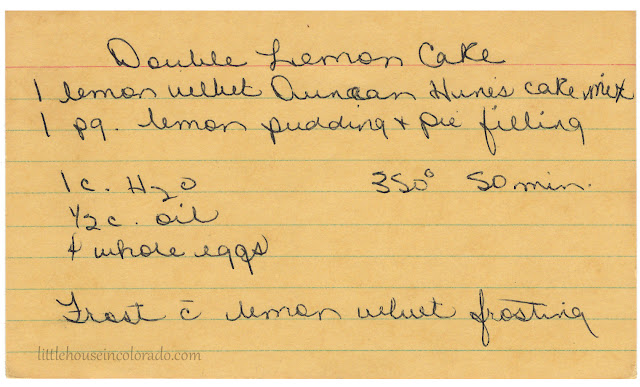 Double Lemon Cake
1 lemon velvet Duncan Hines cake mix
1 pg. lemon pudding + pie filling
1 c. H2O 350° 50 min.
1/2 c. oil
4 whole eggs
Frost c̄ lemon velvet frosting
littlehouseincolorado.com